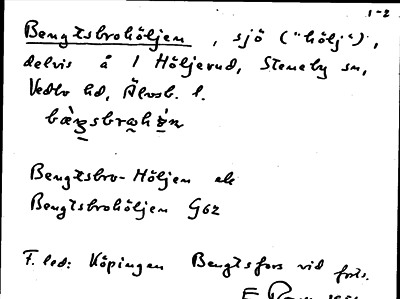 1-2
Bengtsbrohöljen, sjö ("hölj"),
delvis å 1 Höljerud, Steneby sn,
Vedbo hd, Älvsb. l.
Bengtsbro-Höljen el.
Bengtsbrohöljen G62
F. led: Köpingen Bengtsfors vid forts.